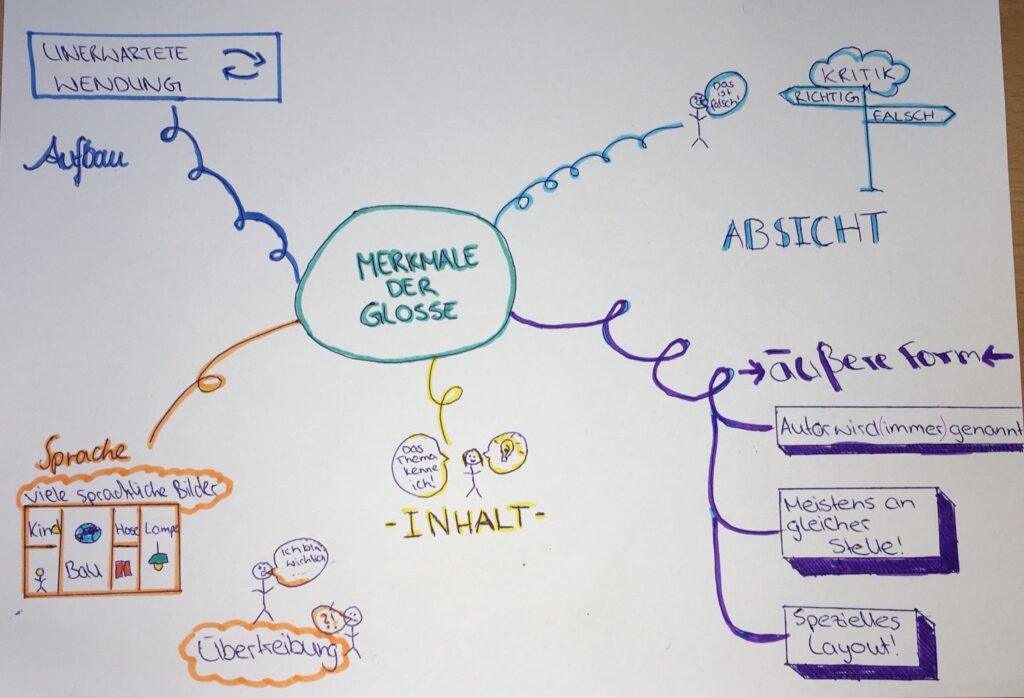 UNERWARTETE
WENDUNG
Aufbau
Das
ist
falsch!
KRITIK
RICHTIG
FALSCH
ABSICHT
MERKMALE
DER
GLOSSE
äußere Form
Autor wird (immer) genannt
Meistens an
gleicher
Stelle!
Spezielles
Layout!
Das
Thema
kenne
ich!
- INHALT -
Sprache
viele sprachliche Bilder
Kind
Ball
Hose
Lampe
Ich bin
wirklich
...
?!
Übertreibung